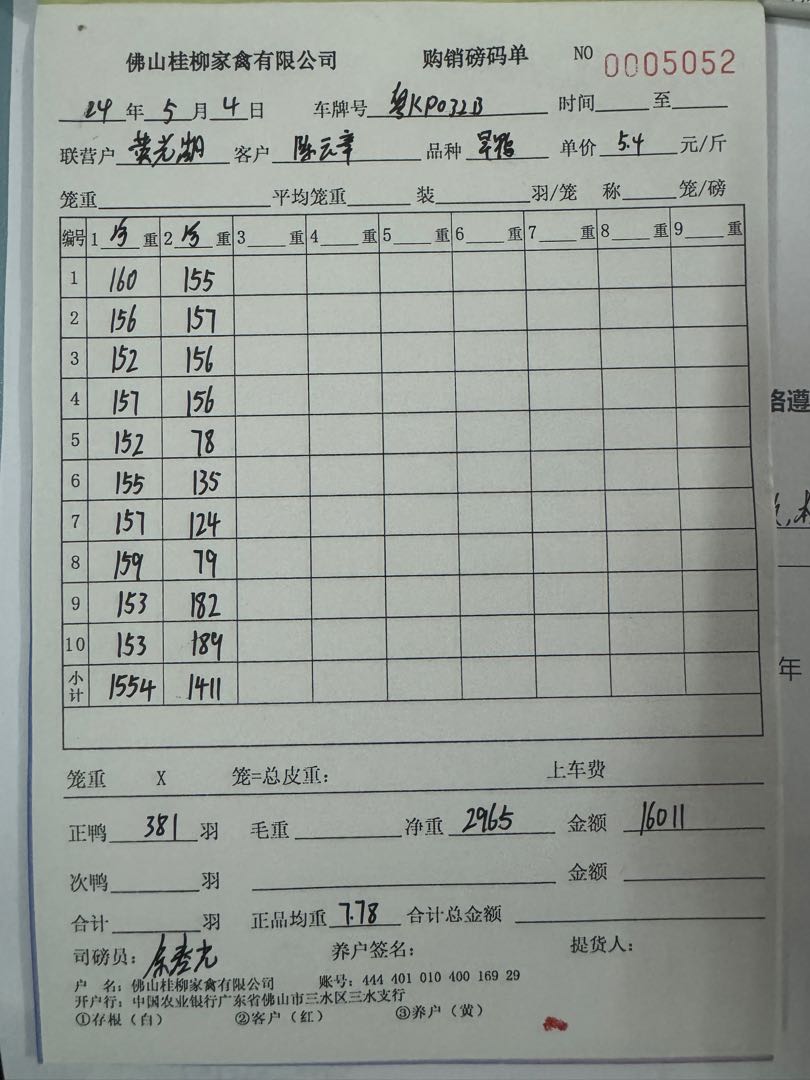 佛山桂柳家禽有限公司 购销磅码单 NO 0005052
24年5月4日 车牌号 粤KP032B 时间 至
联营户 黄光湖 客户 陈云章 品种 旱鸭 单价 5.4 元/斤
笼重 平均笼重 装 羽/笼 称 笼/磅
编号 1 重 2 重 3 重 4 重 5 重 6 重 7 重 8 重 9 重
1 160 155
2 156 157
3 152 156
4 157 156
5 152 78
6 155 135
7 157 124
8 159 79
9 153 182
10 153 189
小计 1554 1411
笼重 X 笼=总皮重: 上车费
正鸭 381 羽 毛重 净重 2965 金额 16011
次鸭 羽 金额
合计 羽 正品均重 7.78 合计总金额
司磅员: 养户签名: 提货人:
户 名: 佛山桂柳家禽有限公司 账号: 444 401 010 400 169 29
开户行: 中国农业银行广东省佛山市三水区三水支行
①存根(白) ②客户(红) ③养户(黄)
格遵
年